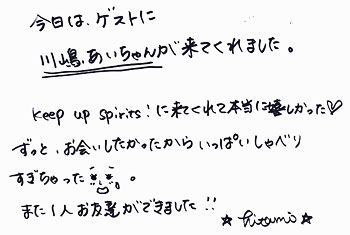 今日は、ゲストに
川嶋あいちゃんが来てくれました。
keep up spirits!に来てくれて本当に嬉しかった♡
ずっと、お会いしたかったから いっぱいしゃべり
すぎちゃった。
また1人お友達ができました!!
☆ hitomi ☆